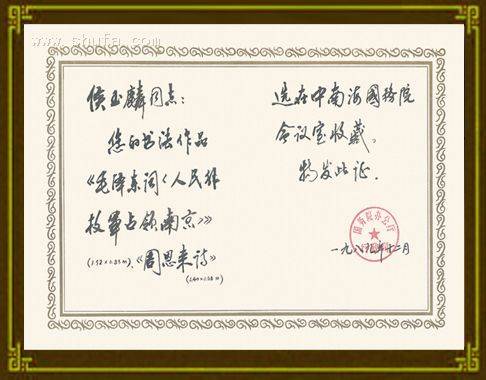 www.shufa.com
侯玉麟同志：
您的书法作品
《毛泽东词〈人民解
放军占领南京〉》
(1.52×0.83m)、《周恩来诗》
选在中南海国务院
会议室收藏。
特发此证.
国务院办公厅
一九八九年十二月